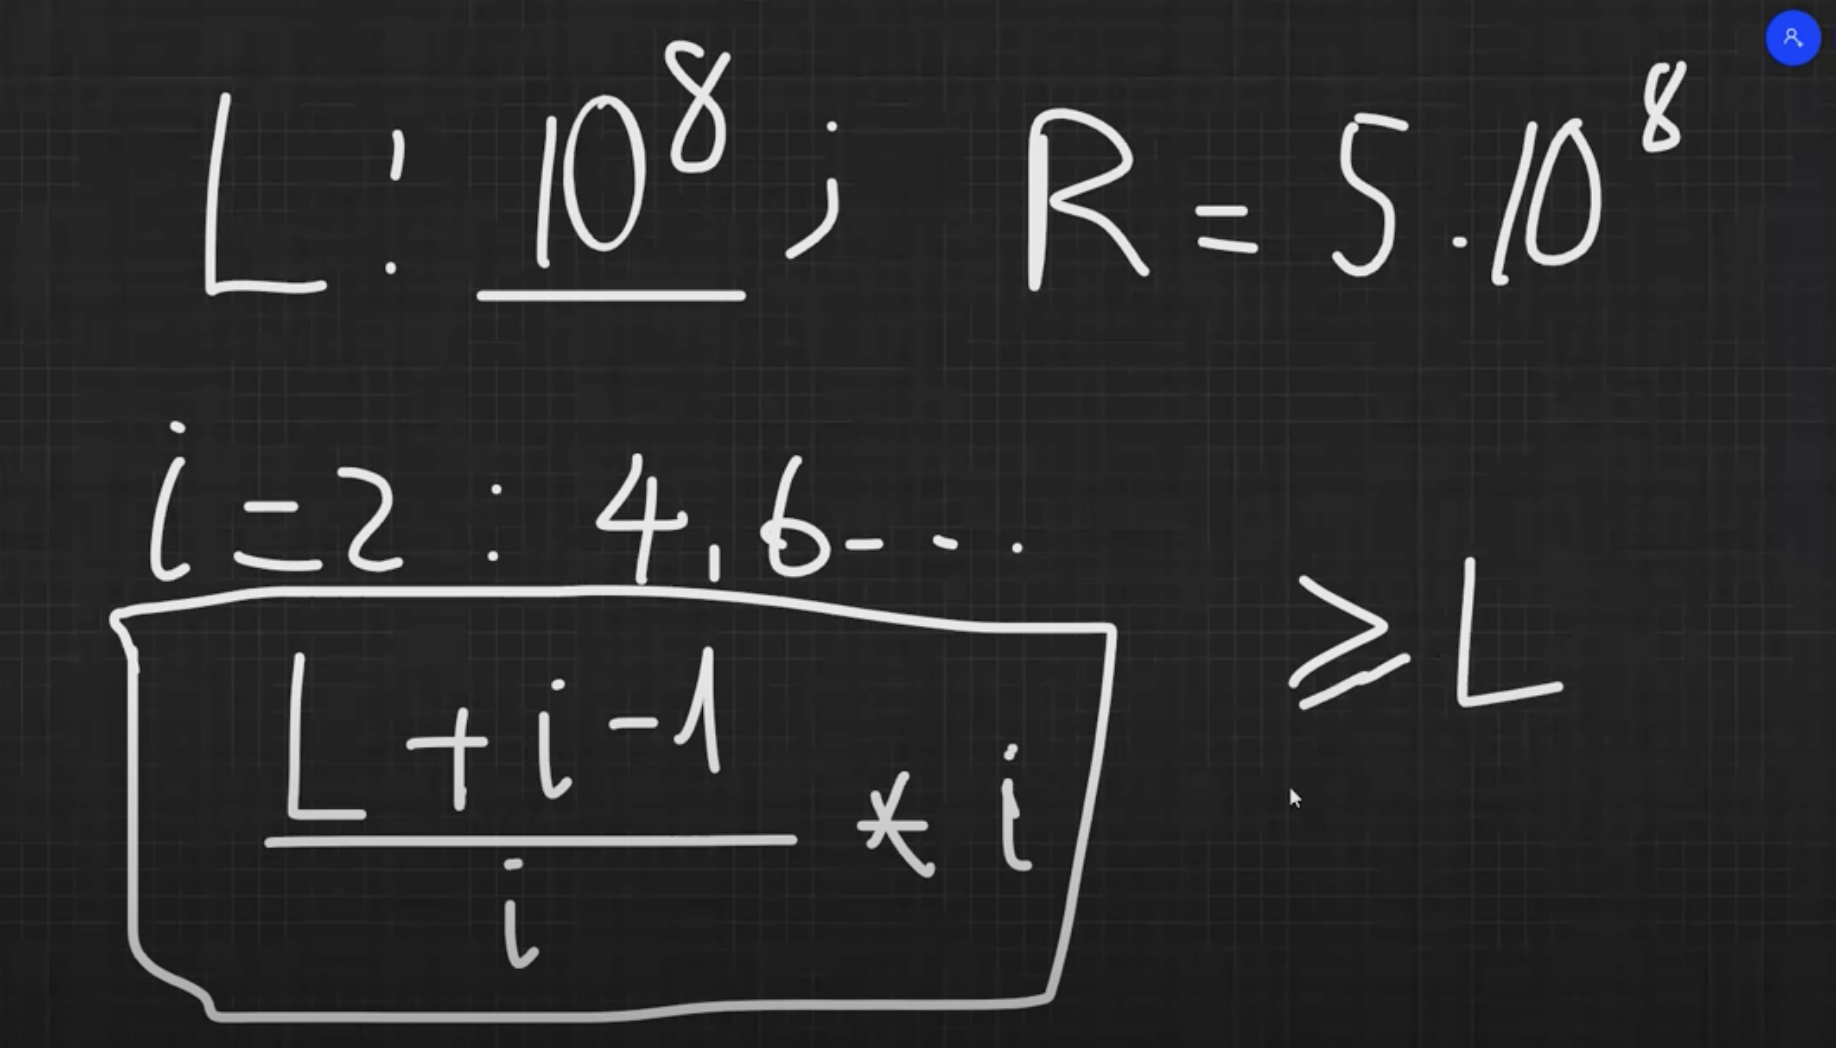 L : 10⁸ ; R = 5.10⁸
i = 2 : 4, 6 - - .
L + i - 1 / i * i ≥ L